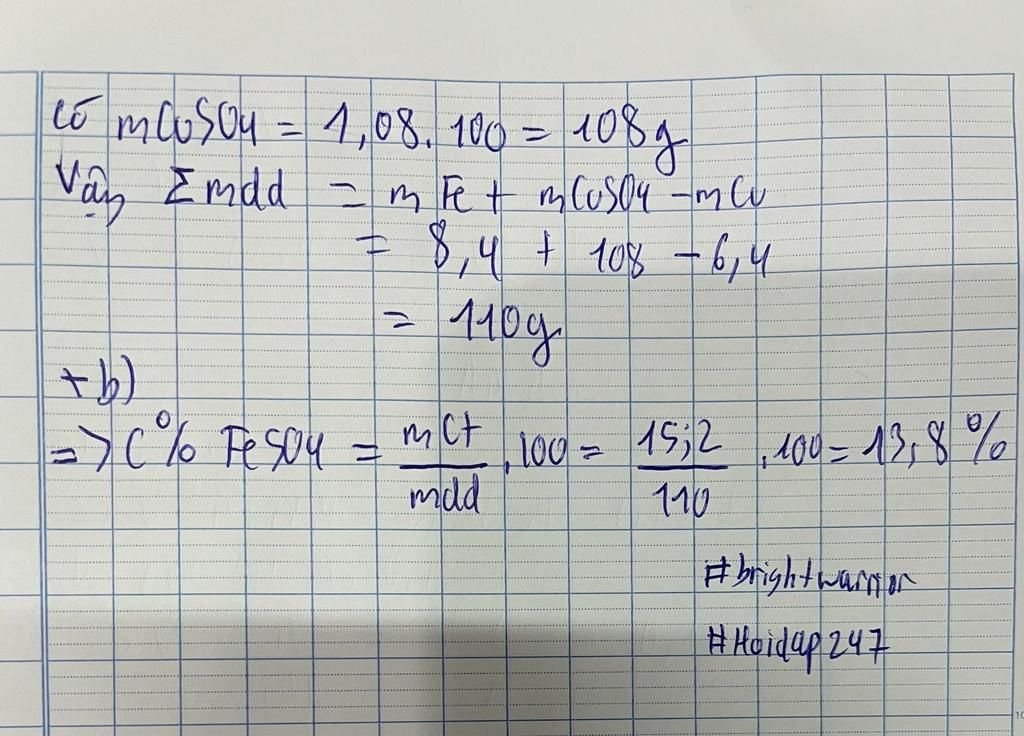 Có mCuSO4 = 1,08. 100 = 108g
Vậy Σmdd = mFe + mCuSO4 - mCu
= 8,4 + 108 - 6,4
= 110g
+ b)
=> C% FeSO4 = mct/mdd . 100 = 15,2/110 . 100 = 13,8%
#brightwarrior
#Hoidap247
10